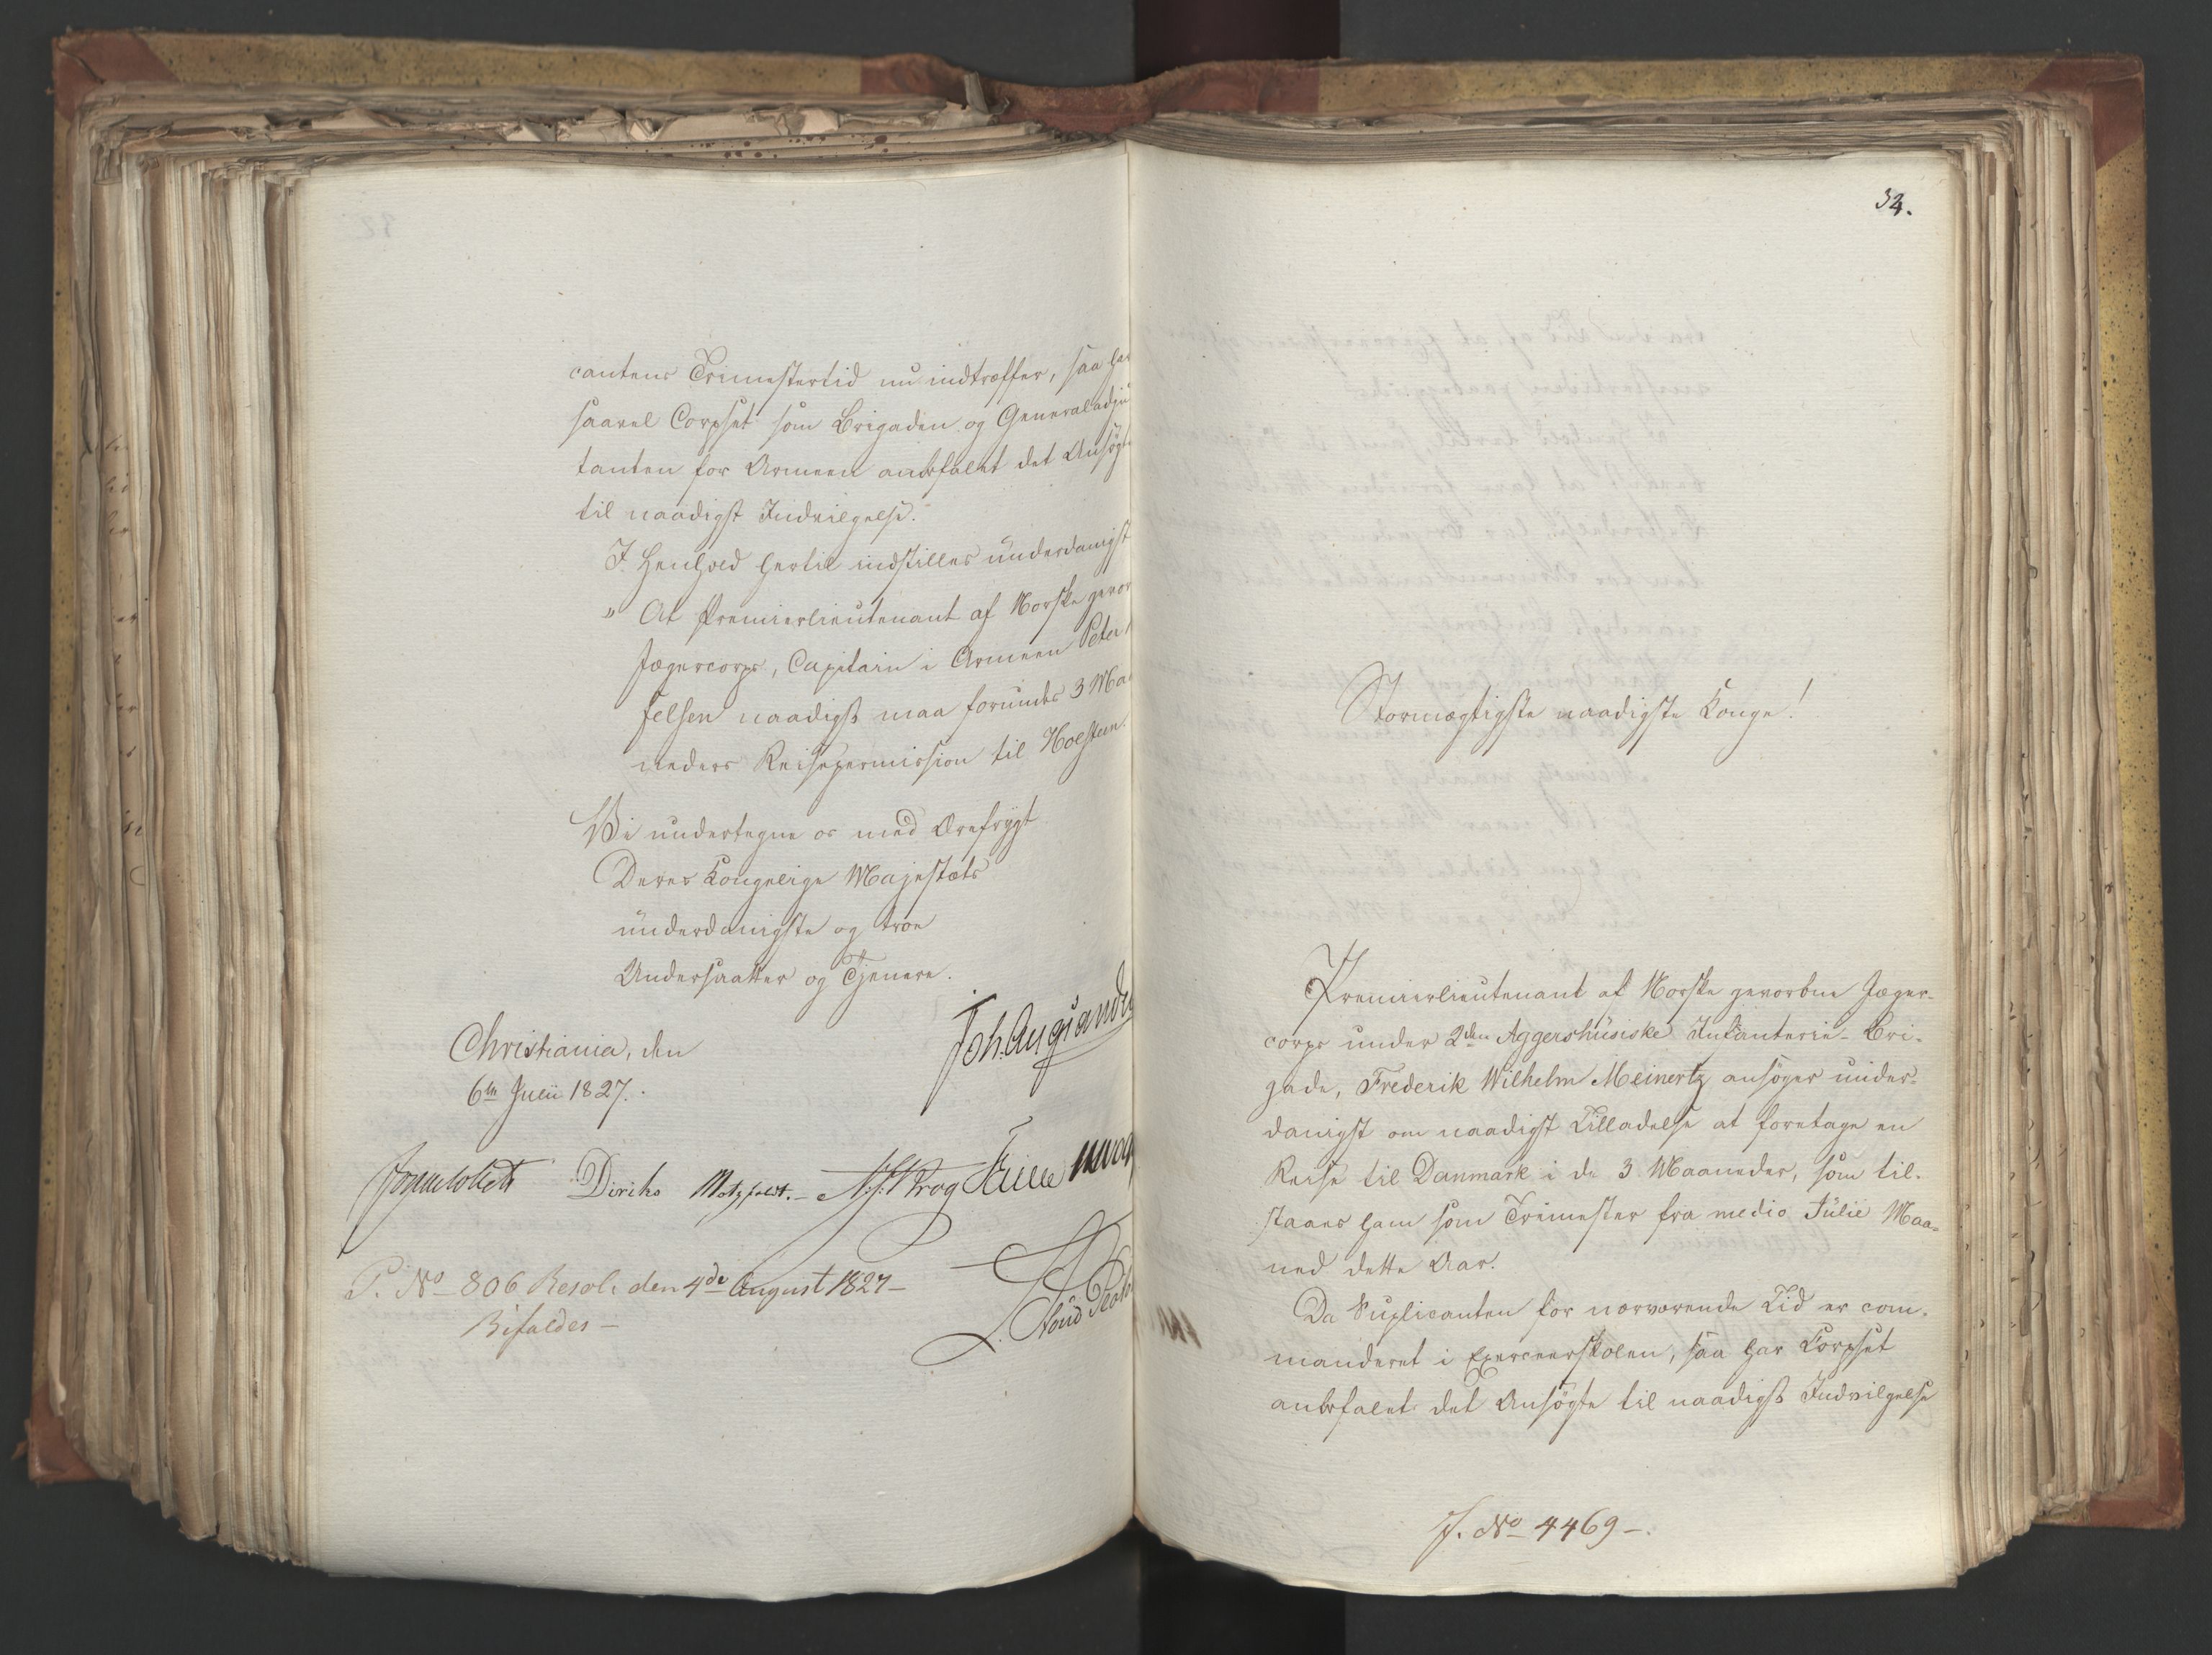 cantens Trimestertid nu indtræffer, saa har
saavel Corpset som Brigaden og Generaladju
tanten for Armeen anbefalet det Ansøgte
til naadigst Indvilgelse.
I Henhold hertil indstilles underdanigst
" At Premierlieutenant af Norske gevor
Jægercorps, Capitain i Armeen Peter
Jelsen naadigst maa forundes 3 Maa
neders Reisepermission til Holsteen.
Vi undertegne os med Ærefrygt
Deres Kongelige Majestæts
underdanigste og troe
Undersaatter og Tjenere.
Christiania, den
6te Julii 1827.
Diriks Motzfeldt. Krog
P. No 806 Resol. den 4de August 1827
Bifaldes
34.
Stormægtigste naadigste Konge!
Premierlieutenant af Norske gevorbne Jæger-
corps under 2den Aggershusiske Infanterie-Bri-
gade, Frederik Wilhelm Meinertz ansøger under-
danigst om naadigst Tilladelse at foretage en
Reise til Danmark i de 3 Maaneder, som til-
staaes ham som Trimester fra medio Julie Maa-
ned dette Aar.
Da Suplicanten for nærværende Tid er com-
manderet i Exerceerskolen, saa har Corpset
anbefalet det Ansøgte til naadigst Indvilgelse
J. No 4469